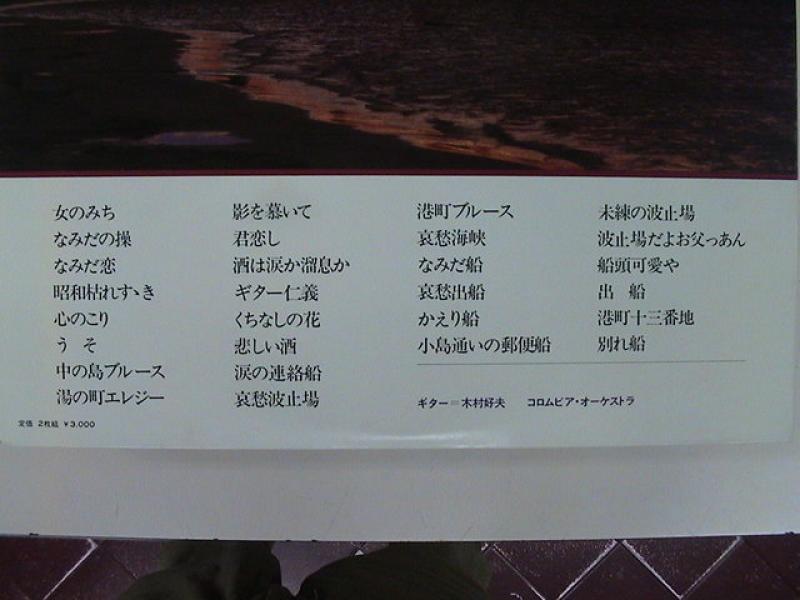 女のみち
なみだの操
なみだ恋
昭和枯れすゝき
心のこり
うそ
中の島ブルース
湯の町エレジー
影を慕いて
君恋し
酒は涙か溜息か
ギター仁義
くちなしの花
悲しい酒
涙の連絡船
哀愁波止場
港町ブルース
哀愁海峡
なみだ船
哀愁出船
かえり船
小島通いの郵便船
未練の波止場
波止場だよお父っあん
船頭可愛や
出 船
港町十三番地
別れ船
ギター=木村好夫 コロムビア・オーケストラ
定価 2枚組 ¥3,000